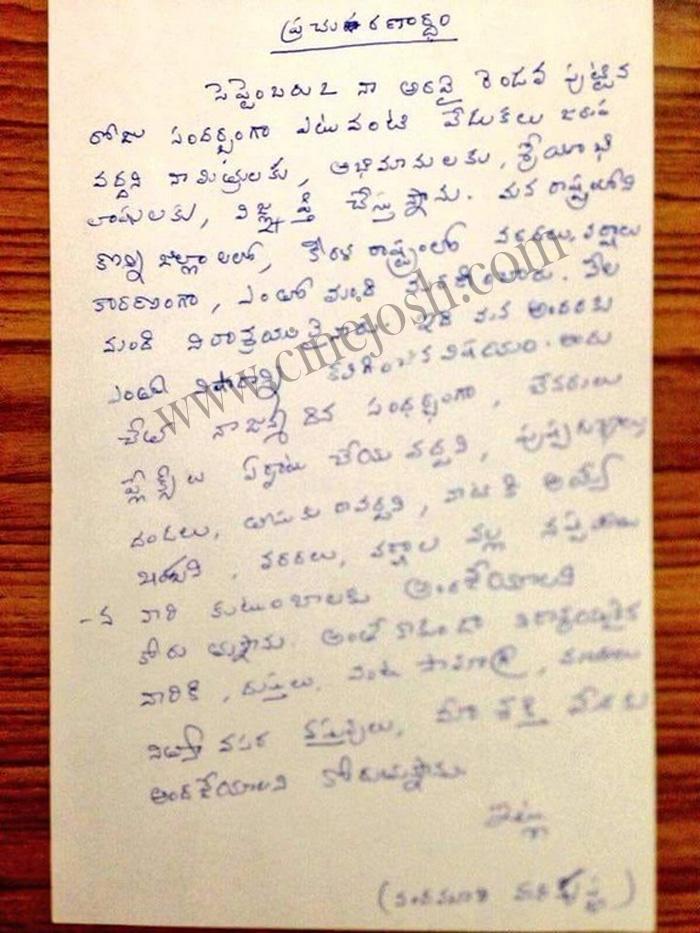 ప్రచురణార్థం
సెప్టెంబరు 2 నా అరవై రెండవ పుట్టిన
రోజు సందర్భంగా ఎటువంటి వేడుకలు జరుప
వద్దని నా మిత్రులకు, అభిమానులకు, శ్రేయోభి
లాషులకు, విజ్ఞప్తి చేస్తున్నాను. మన రాష్ట్రంలోని
కొన్ని జిల్లాలలో, కేరళ రాష్ట్రంలో వరదలు, వర్షాలు
కారణంగా, ఎంతో మంది మరణించారు. వేల
మంది నిరాశ్రయులైనారు. ఇది మన అందరికి
ఎంతో విషాదాన్ని కలిగించిన విషయం. అందు
చేత నా జన్మదిన సందర్భంగా, బేనరులు
ఫ్లెక్సీలు ఏర్పాటు చేయవద్దని, పుష్పగుచ్ఛాలు
దండలు, తీసుకు రావద్దని, వాటికి అయ్యే
ఖర్చుని, వరదలు, వర్షాల వల్ల నష్టపోయి
-న వారి కుటుంబాలకు అందజేయాలని
కోరుతున్నాను. అంతే కాకుండా నిరాశ్రయులైన
వారికి, దుస్తులు, వంట సామాగ్రి, మందులు
నిత్యావసర వస్తువులు, మీ శక్తి మేరకు
అందజేయాలని కోరుచున్నాను.
ఇట్లు
(నందమూరి హరికృష్ణ)
www.cinejosh.com